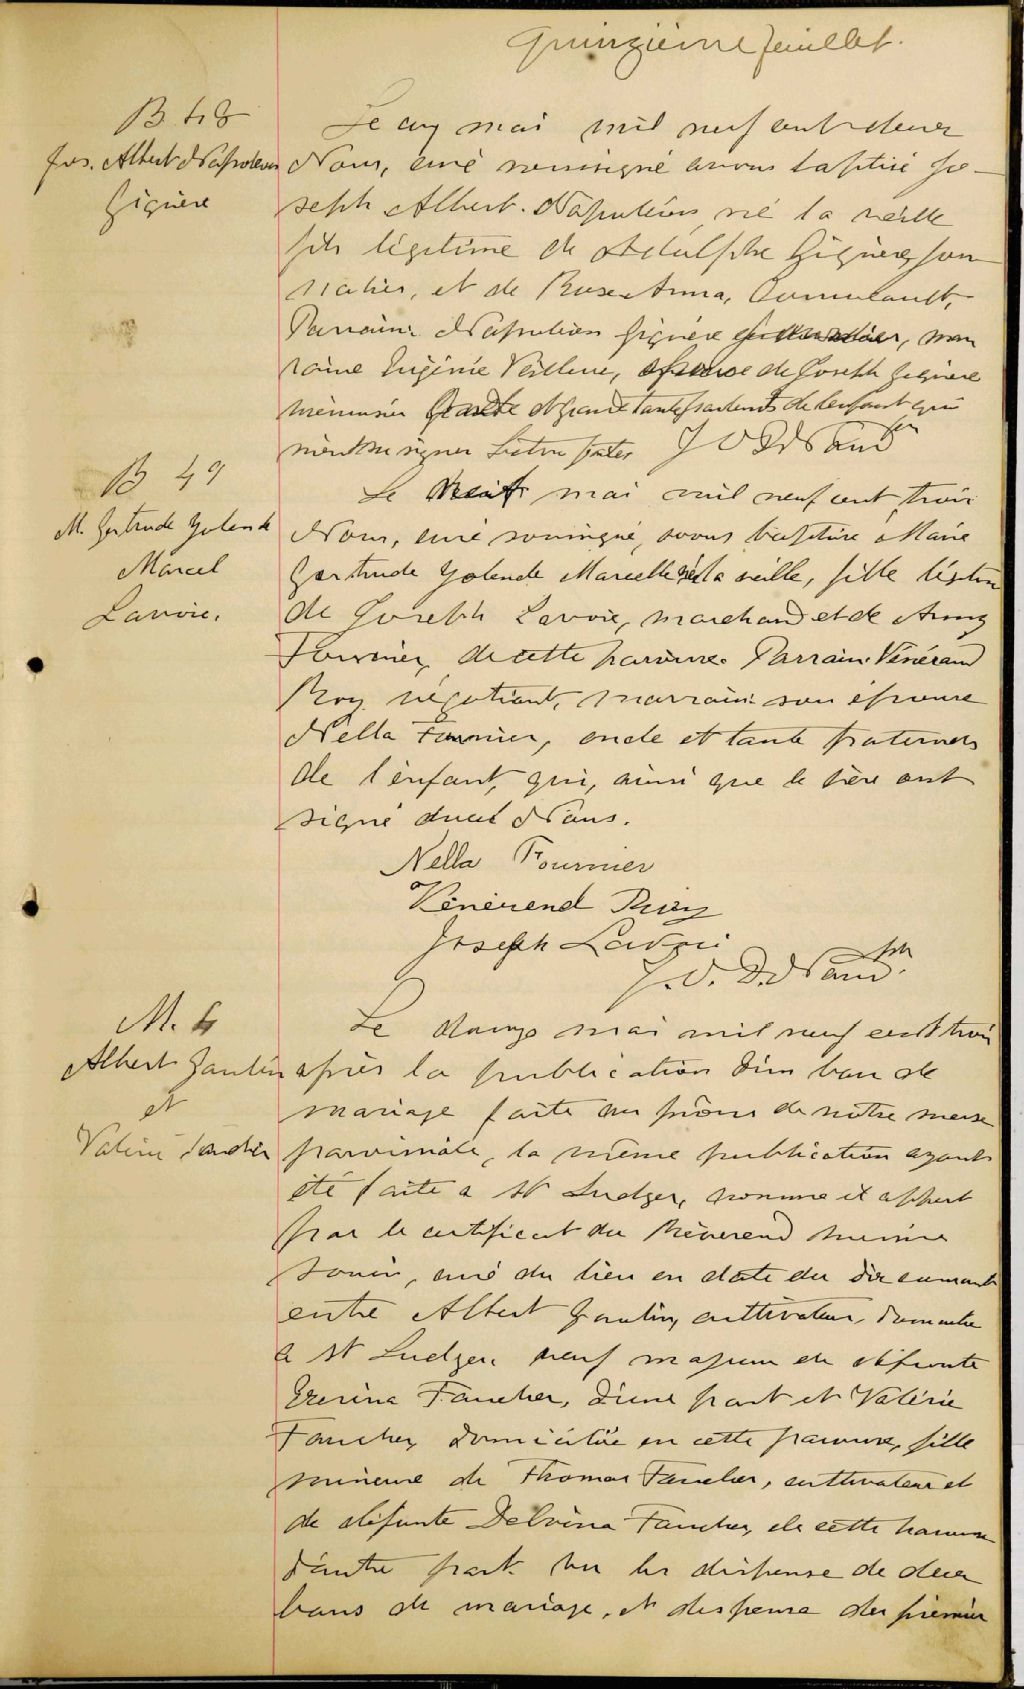 Quinzième feuillet.
B 48
Jos. Albert Napoléon
Giguère
Le cinq mai mil neuf cent deux
Nous, curé soussigné avons baptisé Jo-
seph Albert Napoléon, né la veille
fils légitime de Adolphe Giguère, jour
nalier, et de Rose-Anna,
Parrain Napoléon Giguère mar
raine Eugénie Veilleux, épouse de Joseph Giguère
menuisier et grand tante paternels de l'enfant qui
n'ont su signer. Lecture faite. J V D Nand Ptr
B 49
M. Gertrude Yolende
Marcel
Lavoie.
Le neuf mai mil neuf cent trois
Nous, curé soussigné, avons baptisée Marie
Gertrude Yolende Marcelle née la veille, fille légitime
de Joseph Lavoie, marchand et de Anny
Fournier, de cette paroisse. Parrain Vénérand
Roy négotiant, marraine son épouse
Nella Fournier, oncle et tante paternels
de l'enfant, qui, ainsi que le père ont
signé avec Nous.
Nella Fournier
Vénérend Roy
Joseph Lavoie
J. V. D. Nand. Ptr
M. 4
Albert Gaulin
et
Valérie Faucher
Le douze mai mil neuf cent trois
après la publication d'un ban de
mariage faite au prône de notre messe
paroissiale, la même publication ayant
été faite a St Ludger, comme il appert
par le certificat du Révérend
curé du lieu en date du dix courant
entre Albert Gaulin, cultivateur, domicilié
a St Ludger, veuf majeur de défunte
Exerina Faucher, d'une part et Valérie
Faucher, domiciliée en cette paroisse, fille
mineure de Thomas Faucher, cultivateur et
de défunte Delvina Faucher, de cette paroisse
d'autre part. Vu la dispense de deux
bans de mariage, et dispense du premier